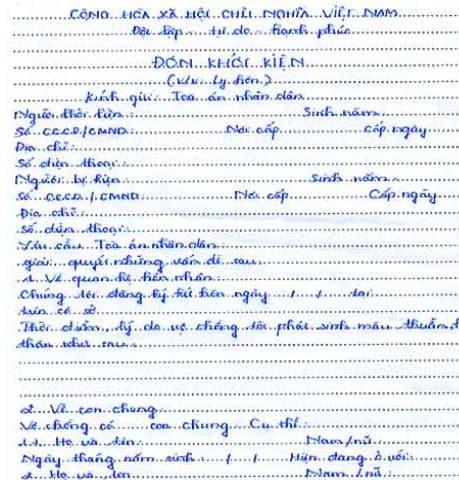 CỘNG HÒA XÃ HỘI CHỦ NGHĨA VIỆT NAM
Độc lập - tự do - hạnh phúc
ĐƠN KHỞI KIỆN
(v/v: Ly hôn)
Kính gửi: Toà án nhân dân
Người khởi kiện: Sinh năm:
Số CCCD/CMND: Nơi cấp Cấp ngày
Địa chỉ:
Số điện thoại:
Người bị kiện: Sinh năm:
Số CCCD/CMND: Nơi cấp Cấp ngày
Địa chỉ:
Số điện thoại:
Yêu cầu Toà án nhân dân
giải quyết những vấn đề sau:
1. Về quan hệ hôn nhân:
Chúng tôi đăng ký kết hôn ngày / / tại:
trên cơ sở
Thời điểm, lý do vợ chồng tôi phát sinh mâu thuẫn,
thân như sau:
2. Về con chung
Vợ chồng có con chung Cụ thể:
1. Họ và tên: Nam/nữ:
Ngày tháng năm sinh: / / Hiện đang ở với:
2. Họ và tên Nam/nữ: